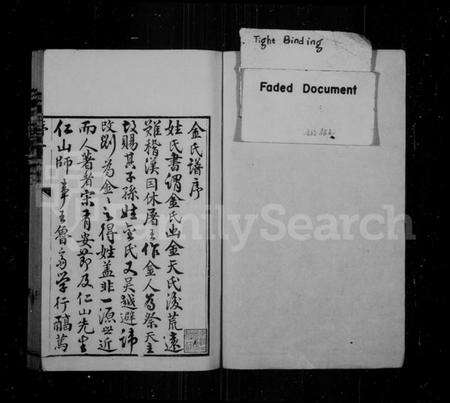 Tight Binding
Faded Document
金氏譜序
姓氏書謂金氏出金天氏後荒遠
難稽漢因休屠王作金人為祭天主
故賜其子孫姓金氏又吳越避諱
改劉為金金之得姓蓋非一源世近
而人著者宋有安節及仁山先生
仁山師事王魯齋學行醕篤
FamilySearch